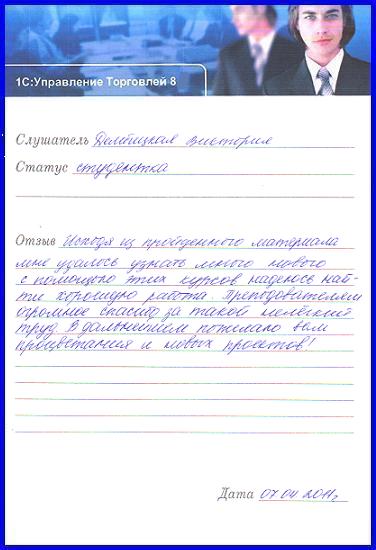 1С:Управление Торговлей 8
Слушатель Виктория
Статус студентка
Отзыв Исходя из пройденного материала
мне удалось узнать много нового
с помощью этих курсов надеюсь най-
ти хорошую работа. Преподавателям
огромное спасибо за такой нелёгкий
труд. В дальнейшем пожелаю вам
процветания и новых проектов!
Дата 07 04 2011г.